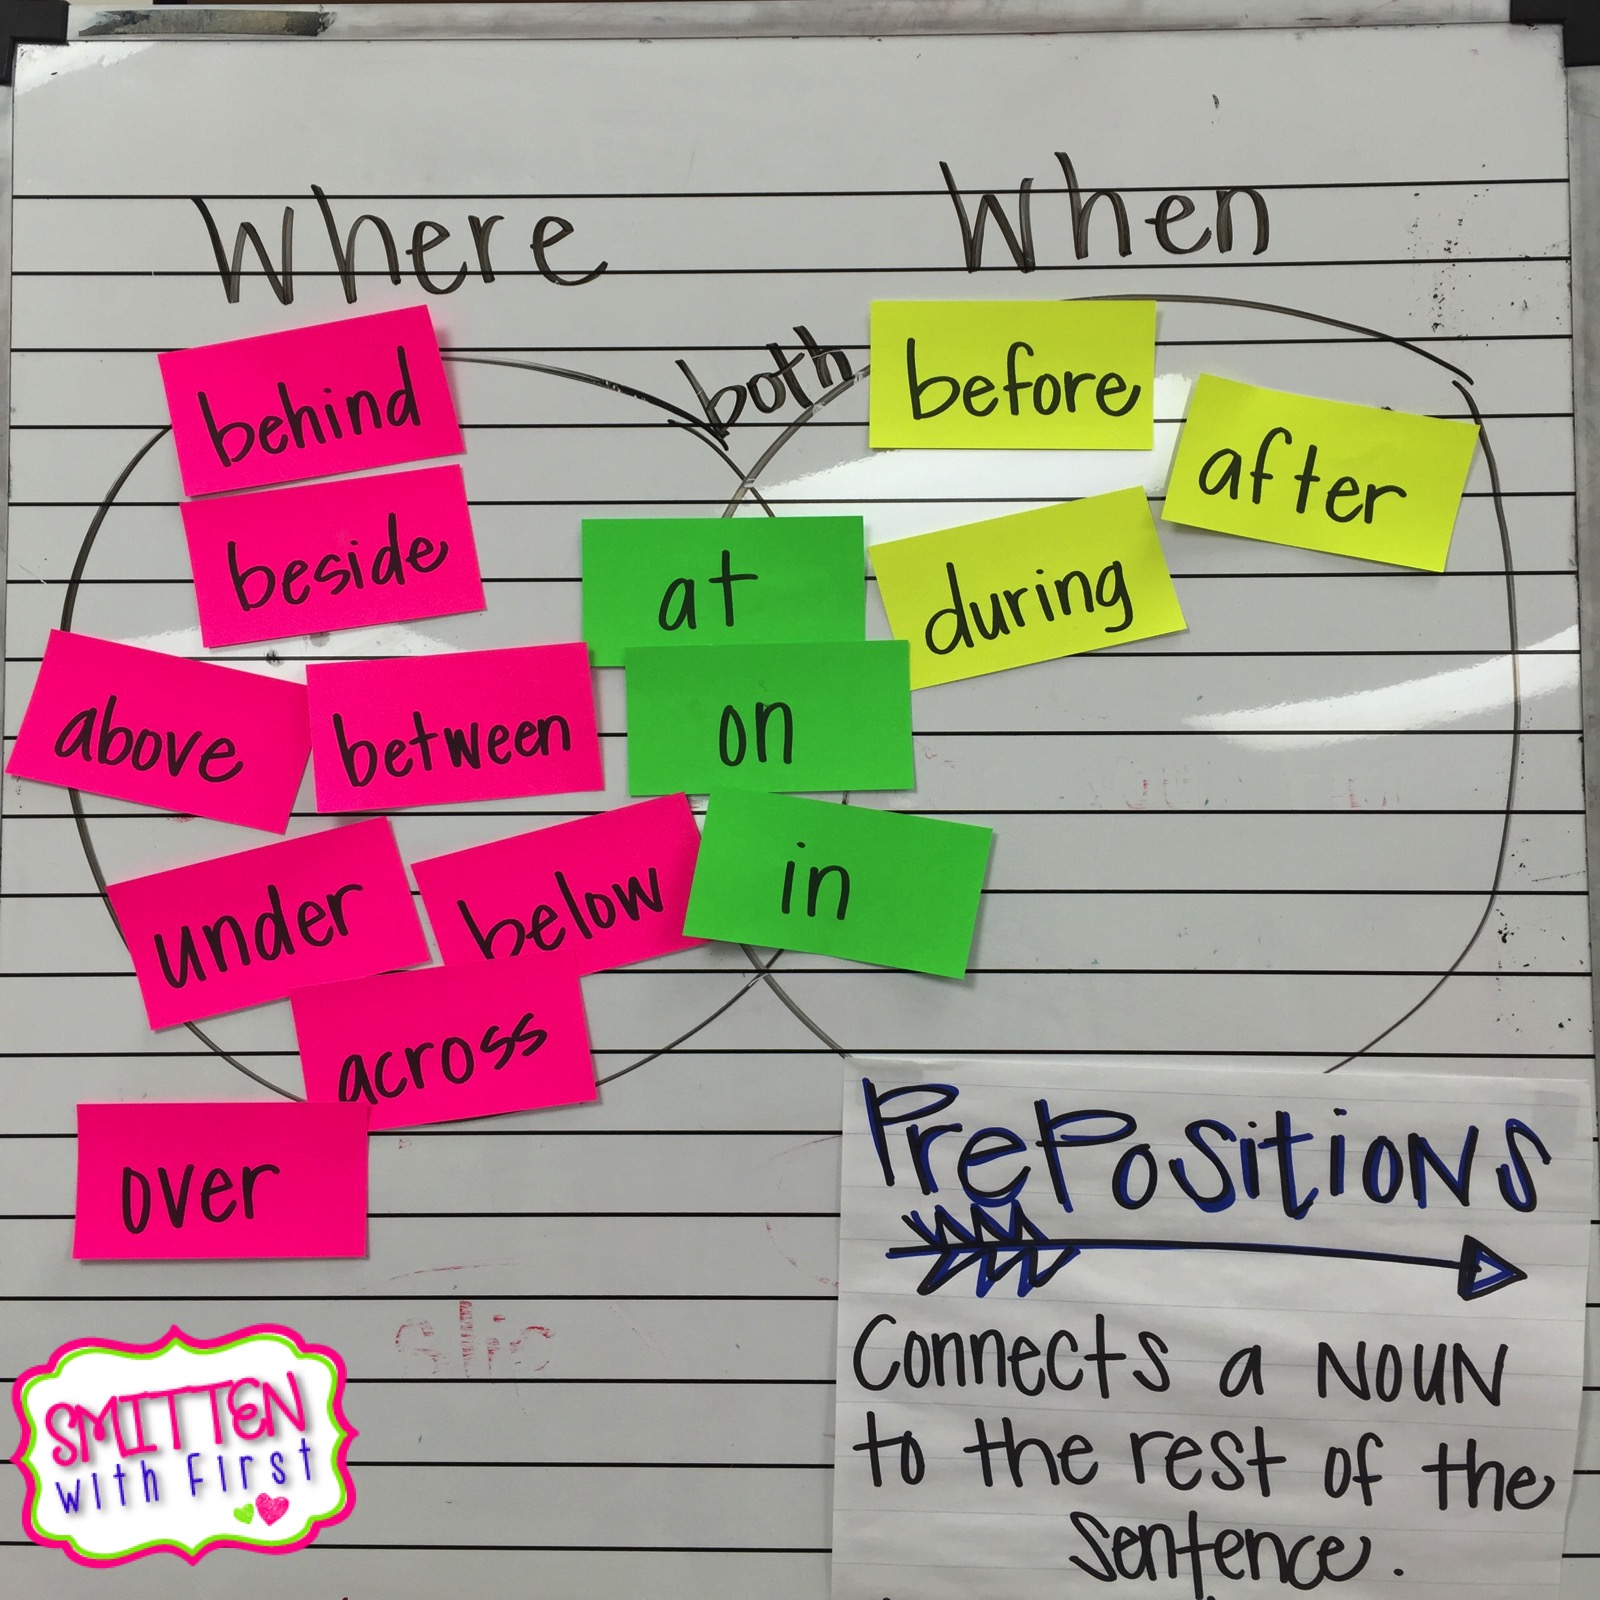 Where
When
both
behind
beside
above
between
under
below
across
over
at
on
in
before
after
during
Prepositions
Connects a noun
to the rest of the
sentence.
SMITTEN
with First